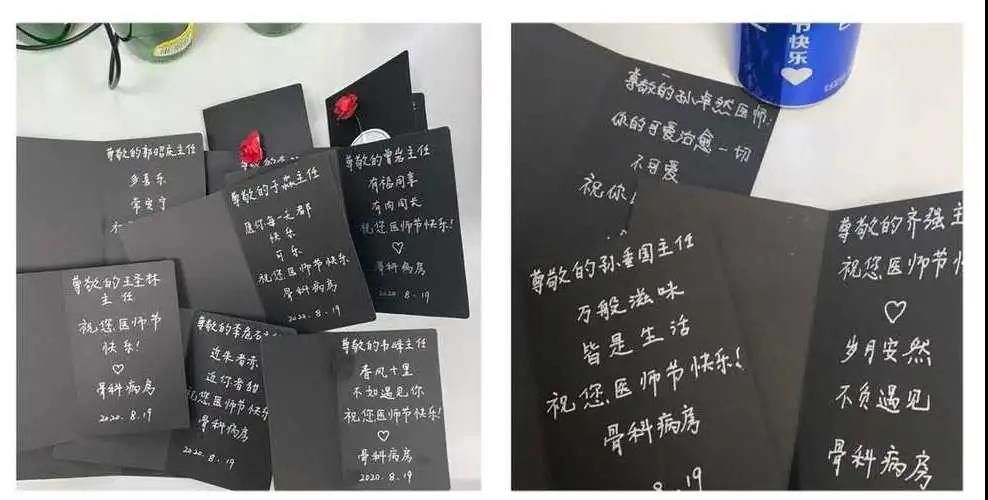 尊敬的郭昭庆主任
多喜乐
常安宁
尊敬的曾岩主任
有福同享
有肉同长
祝您医师节快乐!
♡
骨科病房
2020.8.19
尊敬的于淼主任
愿你每一天都
快乐
可乐
祝您医师节快乐
骨科病房
2020.8.19
尊敬的王圣林
主任
祝您医师节
快乐!
♡
骨科病房
2020.8.19
尊敬的李危石
近朱者赤
近你者甜
祝您医师节快乐!
骨科病房
2020.8.19
尊敬的韦峰主任
春风十里
不如遇见你
祝您医师节快乐!
♡
骨科病房
2020.8.19
节快乐
尊敬的孙卓然医师:
你的可爱治愈一切
不可爱
祝你
尊敬的孙垂国主任
万般滋味
皆是生活
祝您医师节快乐!
骨科病房
8.19
尊敬的齐强主
祝您医师节快
♡
岁月安然
不负遇见
骨科病房